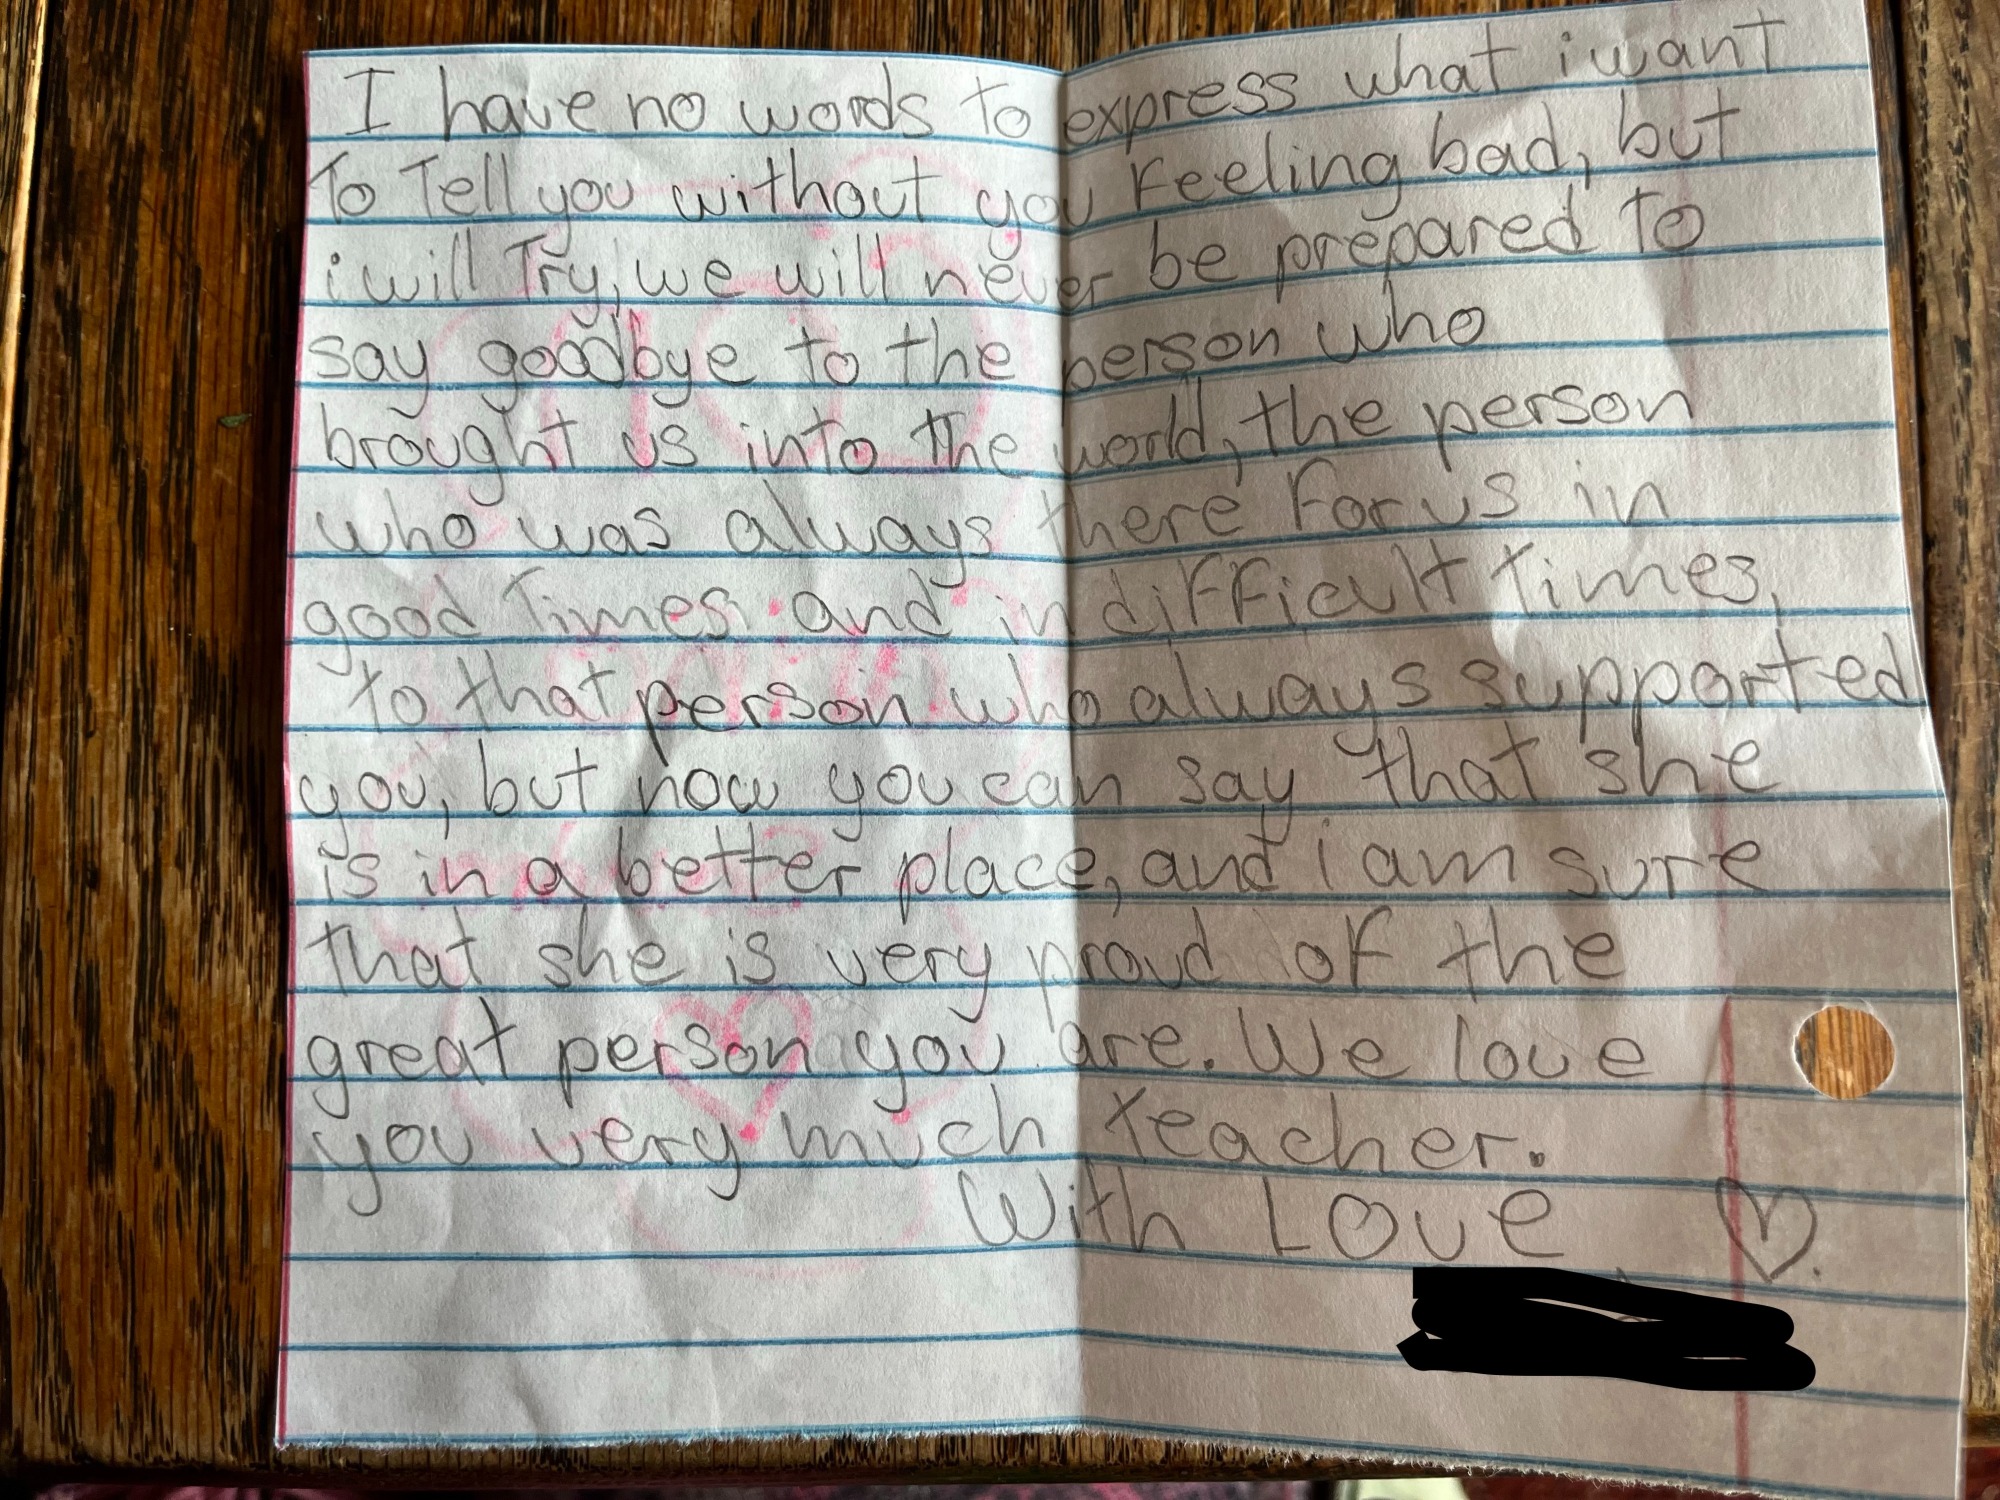 I have no words to express what i want
To Tell you without you Feeling bad, but
i will Try, we will never be prepared to
say goodbye to the person who
brought us into the world, the person
who was always there For us in
good Times and in difficult times,
to that person who always supported
you, but now you can say that she
is in a better place, and i am sure
that she is very proud of the
great person you are. We love
you very much teacher.
With Love